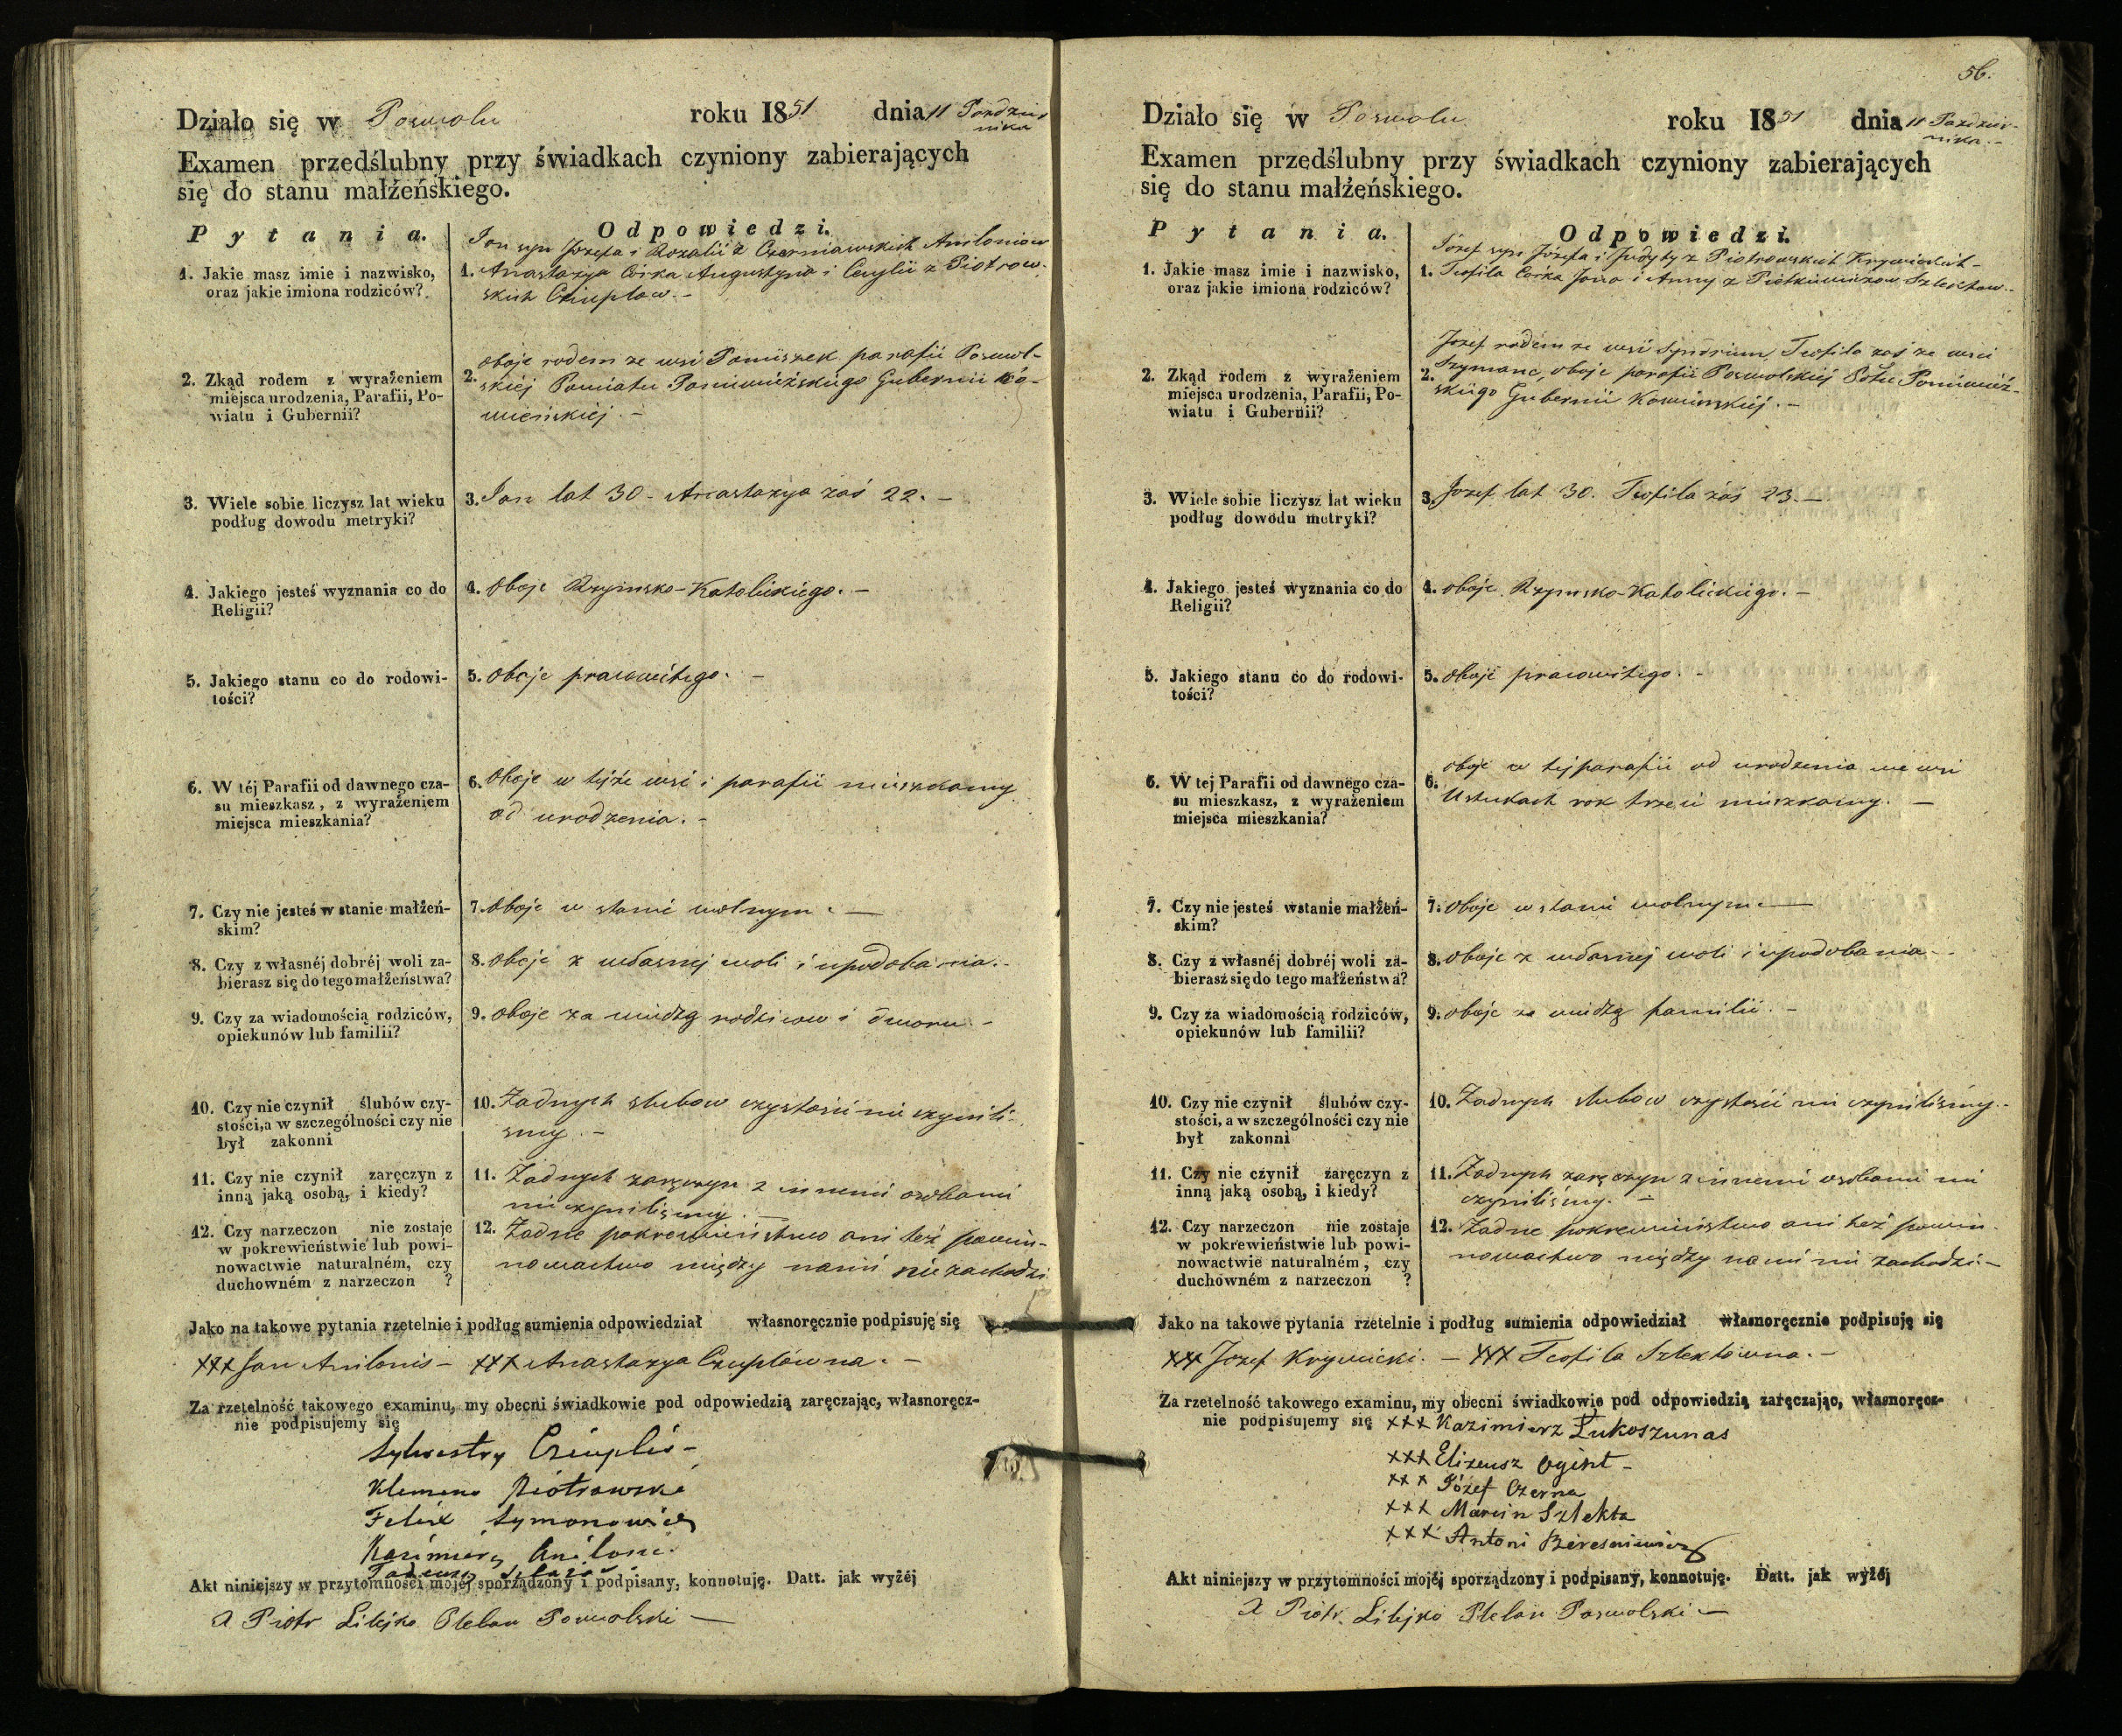 Działo się w Poswolu roku 1851 dnia 11 Paździer
nika
Examen przedślubny przy świadkach czyniony zabierających
się do stanu małżeńskiego.
Pytania. Odpowiedzi.
1. Jakie masz imie i nazwisko,
oraz jakie imiona rodziców?
Jan syn Józefa i Rozalii z Czerniawskich Aniloniow
1. Anastazya Córka Augustyna i Cecylii z Piotrow
skich Cziuplow. -
2. Zkąd rodem z wyrażeniem
miejsca urodzenia, Parafii, Po-
wiatu i Gubernii?
oboje rodem ze wsi Pamiszek parafii Poswol-
2. skiéj Powiatu Poniewiéżskiego Gubernii Ko-
wieńskiéj. -
3. Wiele sobie liczysz lat wieku
podług dowodu metryki?
3. Jan lat 30 - Anastazya zaś 22. -
4. Jakiego jesteś wyznania co do
Religii?
4. Oboje Rzymsko-Katolickiego. -
5. Jakiego stanu co do rodowi-
tości?
5. oboje pracowitego. -
6. W téj Parafii od dawnego cza-
su mieszkasz, z wyrażeniem
miejsca mieszkania?
6. Oboje w tejże wsi i parafii mieszkamy
od urodzenia. -
7. Czy nie jesteś w stanie małżeń-
skim?
7. Oboje w stanie wolnym. -
8. Czy z własnéj dobréj woli za-
bierasz się do tego małżeństwa?
8. oboje z własnej woli i upodobania. -
9. Czy za wiadomością rodziców,
opiekunów lub familii?
9. oboje za wiedzą rodzicow i dworu. -
10. Czy nie czynił ślubów czy-
stości, a w szczególności czy nie
był zakonni
10. Żadnych slubow czystosci nie czynili-
smy. -
11. Czy nie czynił zaręczyn z
inną jaką osobą, i kiedy?
11. Żadnych zaręczyn z innemi osobami
nie czynilismy. -
12. Czy narzeczon nie zostaje
w pokrewieństwie lub powi-
nowactwie naturalném, czy
duchowném z narzeczon ?
12. Żadne pokrewieństwo ani też powin-
nowactwo między nami nie zachodzi
Jako na takowe pytania rzetelnie i podług sumienia odpowiedział własnoręcznie podpisuję się
xxx Jan Anilonis - xxx Anastazya Czuplówna. -
Za rzetelność takowego examinu, my obecni świadkowie pod odpowiedzią zaręczając, własnoręcz-
nie podpisujemy się
Sylwestry Cziuplis -
Klemens Piotrowski
Felix Symonowicz
Kazimierz Anilonis
Tadeusz
Akt niniejszy w przytomności mojéj sporządzony i podpisany, konnotuję. Datt. jak wyżéj
X Piotr Litejko Pleban Poswolski -
56.
Działo się w Poswolu roku 1851 dnia 11 Paździer-
nika. -
Examen przedślubny przy świadkach czyniony zabierających
się do stanu małżeńskiego.
Pytania. Odpowiedzi.
1. Jakie masz imie i nazwisko,
oraz jakie imiona rodziców?
Józef syn Józefa i Judyty z Piotrowskich Krywickich -
1. Teofila Córka Jana i Anny z Pietkiewiczow Szlektow. -
2. Zkąd rodem z wyrażeniem
miejsca urodzenia, Parafii, Po-
wiatu i Gubernii?
Józef rodem ze wsi Teofila zaś ze wsi
2. Szymanc, oboje parafii Poswolskiéj Pttu Poniewiéż-
skiego Gubernii Kowieńskiéj. -
3. Wiele sobie liczysz lat wieku
podług dowodu metryki?
3. Józef lat 30. Teofila zaś 23. -
4. Jakiego jesteś wyznania co do
Religii?
4. oboje Rzymsko-Katolickiego. -
5. Jakiego stanu co do rodowi-
tości?
5. oboje pracowitego. -
6. W tej Parafii od dawnego cza-
su mieszkasz, z wyrażeniem
miejsca mieszkania?
oboje w tej parafii od urodzenia we wsi
6. Ustukach rok trzeci mieszkamy. -
7. Czy nie jesteś wstanie małżeń-
skim?
7. Oboje w stanie wolnym. -
8. Czy z własnéj dobréj woli za-
bierasz się do tego małżeństwa?
8. oboje z własnej woli i upodobania. -
9. Czy za wiadomością rodziców,
opiekunów lub familii?
9. oboje za wiedzą familii. -
10. Czy nie czynił ślubów czy-
stości, a w szczególności czy nie
był zakonni
10. Żadnych slubow czystosci nie czynilismy. -
11. Czy nie czynił zaręczyn z
inną jaką osobą, i kiedy?
11. Żadnych zaręczyn z innemi osobami nie
czynilismy. -
12. Czy narzeczon nie zostaje
w pokrewieństwie lub powi-
nowactwie naturalném, czy
duchowném z narzeczon ?
12. Żadne pokrewieństwo ani też powin-
nowactwo między nami nie zachodzi. -
Jako na takowe pytania rzetelnie i podług sumienia odpowiedział własnoręcznie podpisuję się
xxx Józef Krywicki. - xxx Teofila Szlektówna. -
Za rzetelność takowego examinu, my obecni świadkowie pod odpowiedzią zaręczając, własnoręcz-
nie podpisujemy się xxx Kazimierz Łukoszunas
xxx Elizeusz Ogint -
xxx Józef Czerna
xxx Marcin Szlekta
xxx Antoni Bereśniewicz
Akt niniejszy w przytomności mojéj sporządzony i podpisany, konnotuję. Datt. jak wyżéj
X Piotr Litejko Pleban Poswolski -